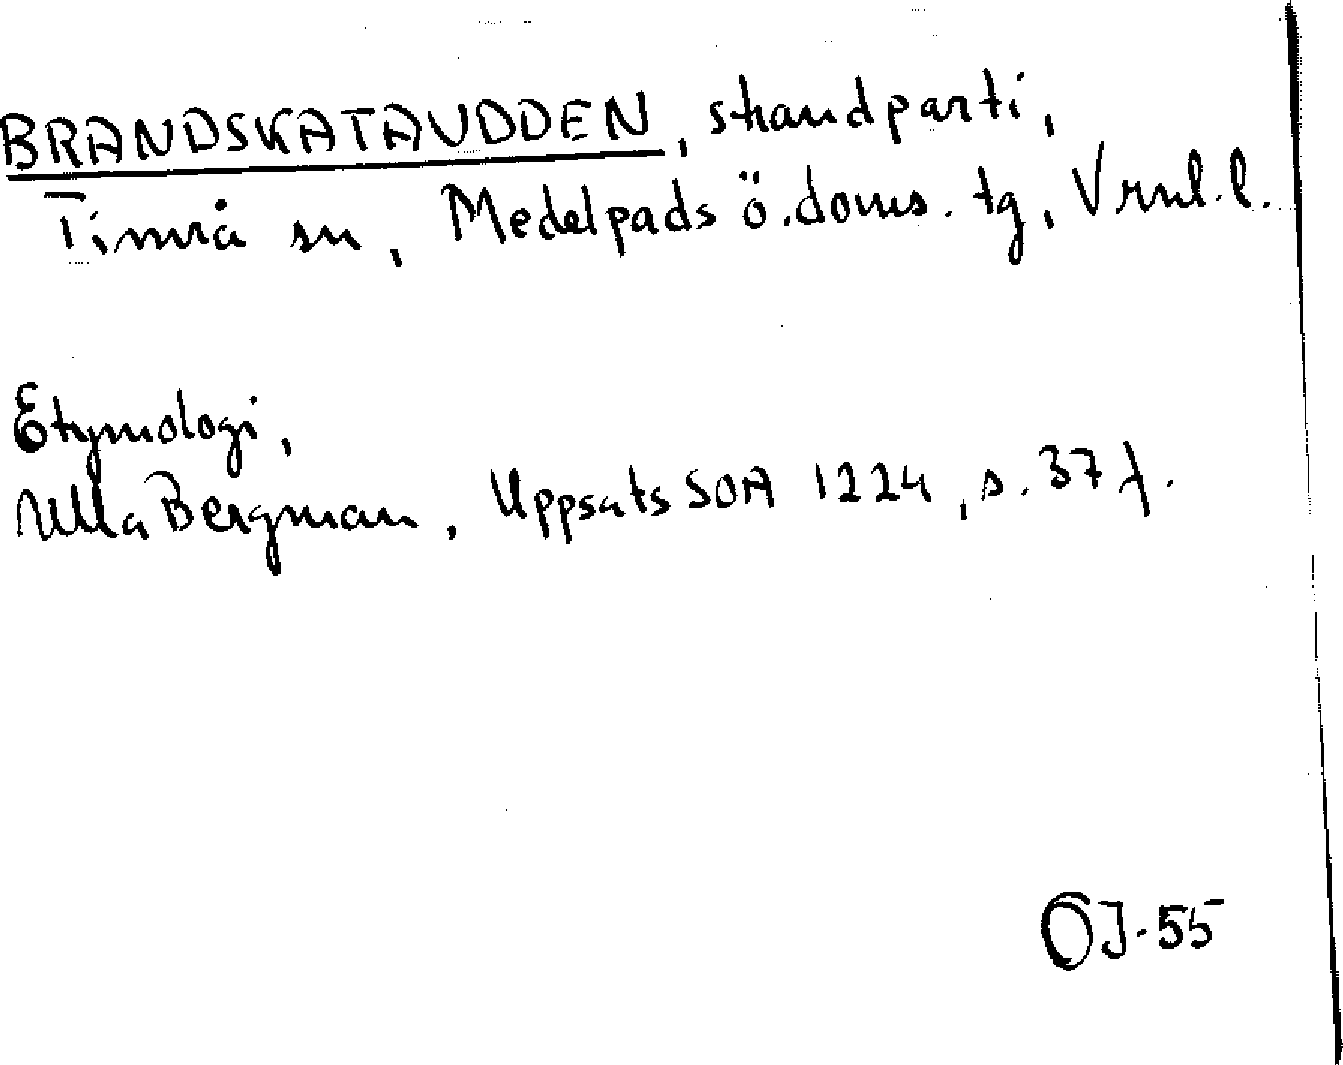 BRANDSKATAUDDEN, strandparti,
Timrå sn, Medelpads ö. doms. tg, Vrnl. l.
Etymologi,
Ulla Bergman, Uppsats SOA 1224, s. 37 f.
OJ-55